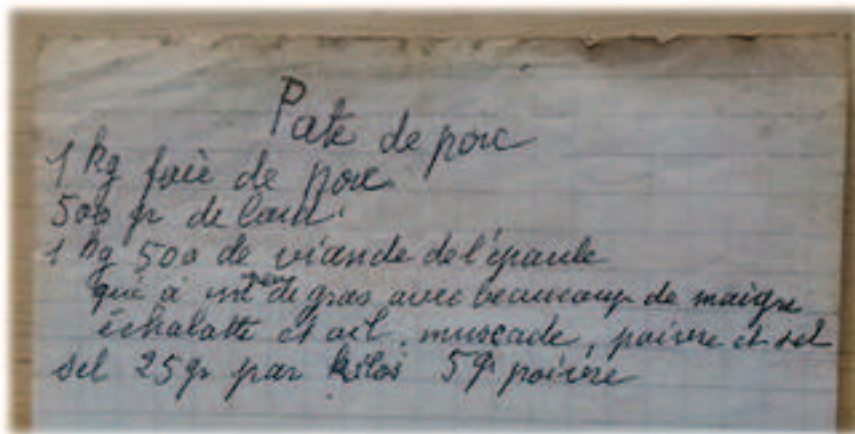 Pate de porc
1 kg foie de porc
500 gr de lard.
1 kg 500 de viande de l'épaule
qui à un peu de gras avec beaucoup de maigre
échalotte et ail, muscade, poivre et sel
sel 25gr par kilos 5gr poivre